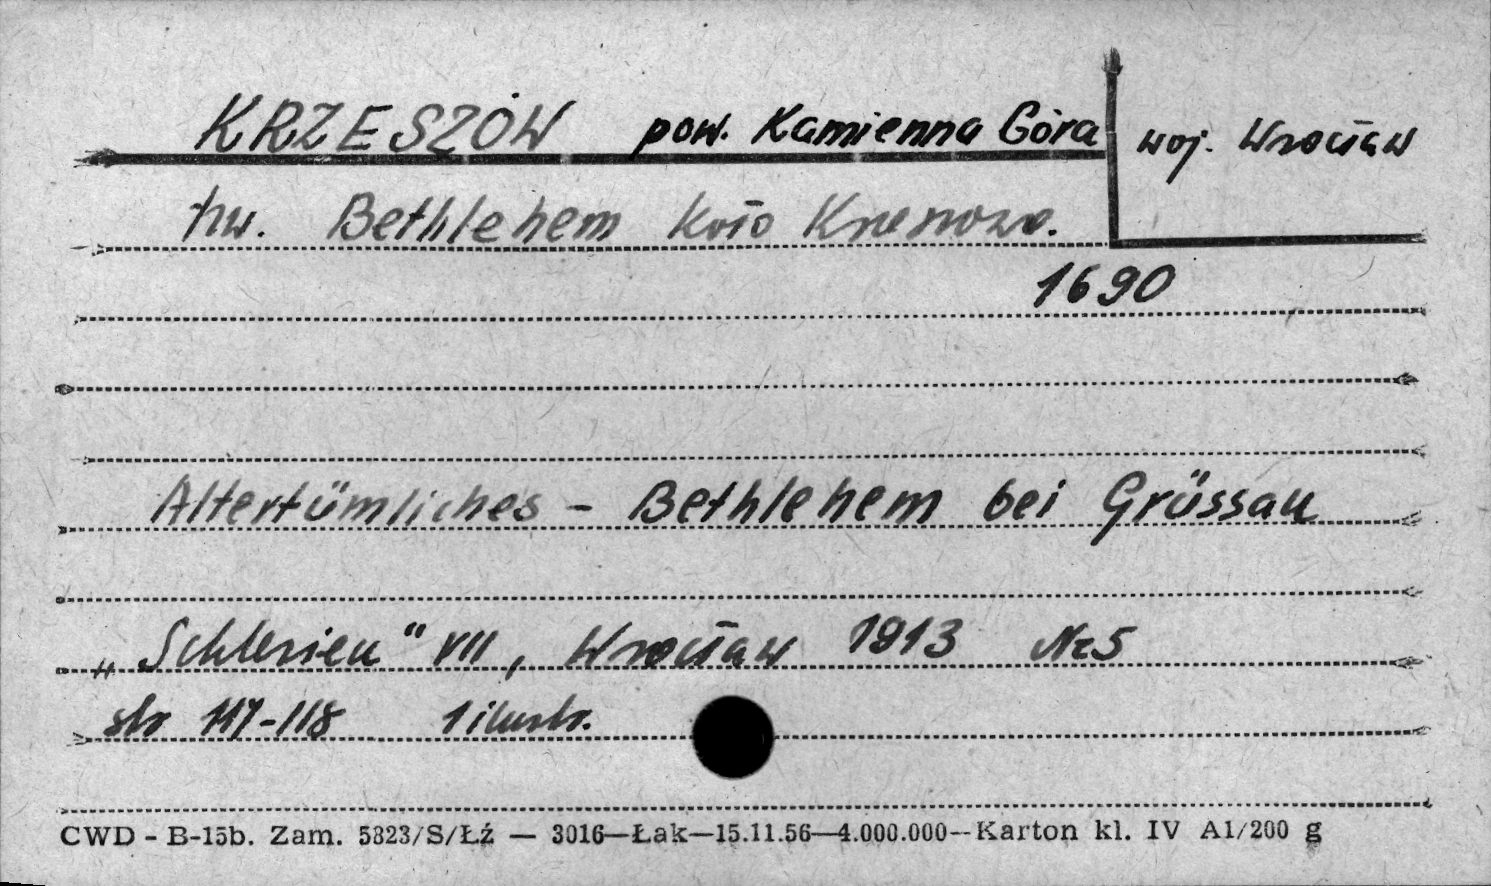 KRZESZÓW pow. Kamienna Góra woj. Wrocław
tzw. Bethlehem koło Krzeszowa.
1690
Altertümliches - Bethlehem bei Grüssau
„Schlesien" VII, Wrocław 1913 Nr 5
str 117-118 1 ilustr.
CWD - B-15b. Zam. 5823/S/Łź — 3016—Łak—15.11.56—4.000.000--Karton kl. IV A1/200 g